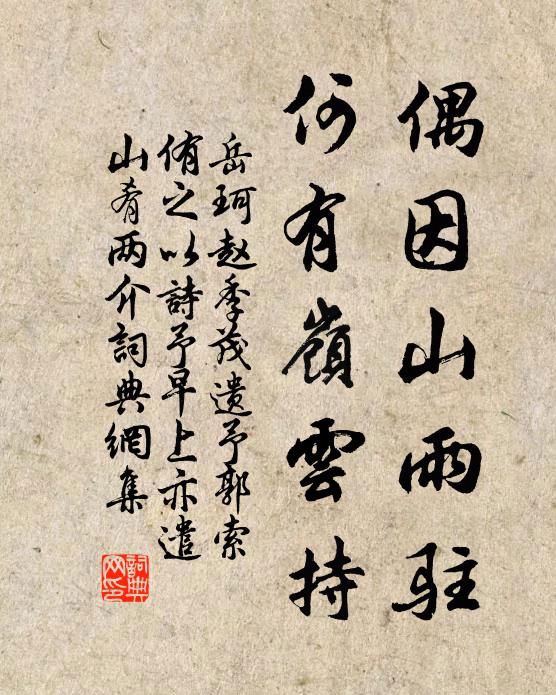 偶因山雨駐
何有嶺雲持
岳珂赵季茂遗予郭索
侑之以詩予早上亦遣
山肴两介詞典網集
詞典网印